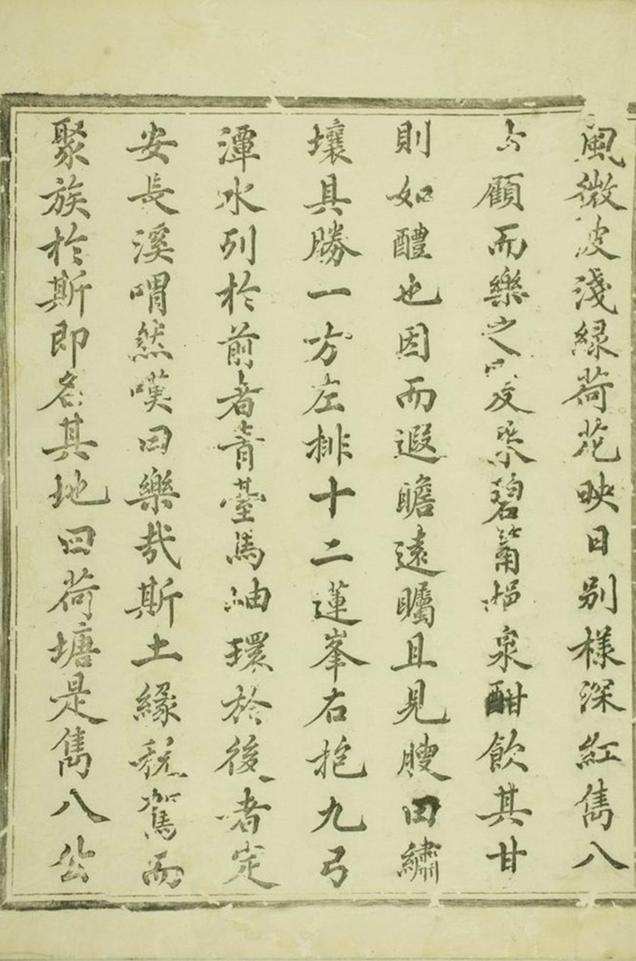 風微波淺綠荷花映日別樣深紅雋八
公顧而樂之爰采碧筩挹泉酣飲其甘
則如醴也因而遐瞻遠矚且見膄田繡
壤具勝一方左排十二蓮峯右抱九弓
潭水列於前者青臺馬岫環於後者定
安長溪喟然嘆曰樂哉斯土緣税駕而
聚族於斯即名其地曰荷塘是雋八公